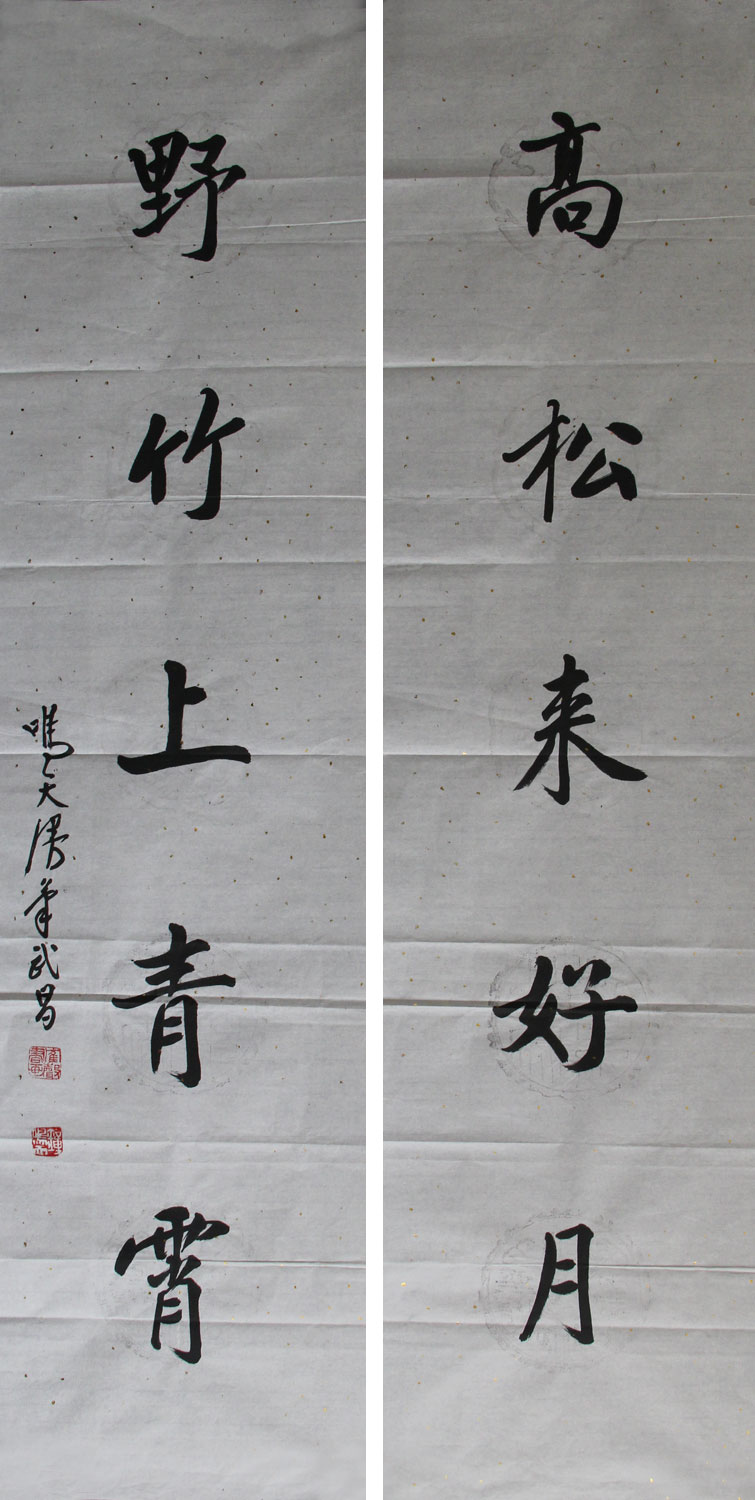 高松来好月
野竹上青霄
武昌